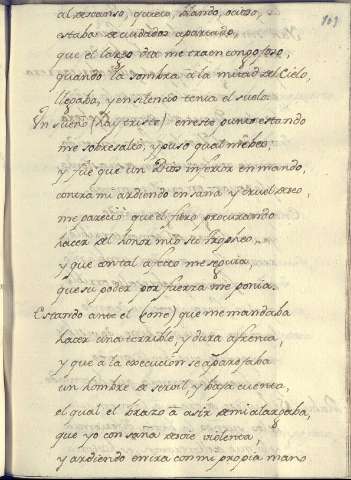 103
al descanso, quieto, blando, ocioso,
estaba de cuidados apartado,
que el largo dia me traen congojoso,
quando la sombra à la mitad del Cielo,
llegaba, y en silencio tenia el suelo.
Un sueño (hay triste) en este punto estando
me sobresaltò, y puso qual me veo;
y fue que un Dios inferior en mando,
contra mi ardiendo en saña y cruel deseo,
me pareciò que el fiero procurando
hacer del honor mio ste tropheo,
y que con tal afecto me seguia,
que su poder por fuerza me ponia.
Estando ante el (oné) que me mandaba
hacer una terrible, y dura afrenta,
y que à la execucion se aparejaba
un hombre de servil, y baja cuenta,
el qual el brazo à asir de mi alargaba,
que yo con saña desde violenta,
y ardiendo en ira con mi propia mano